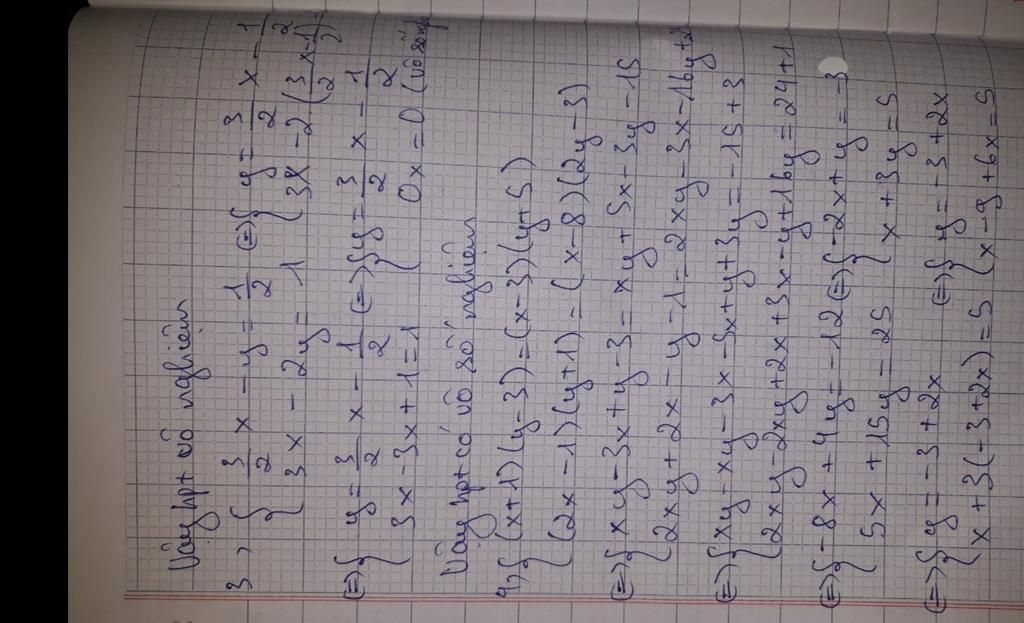 Vậy hpt vô nghiệm
3, { 3/2 x - y = 1/2 (=) { y = 3/2 x - 1/2
{ 3x - 2y = 1 { 3x - 2(3/2 x - 1/2) =
(=) { y = 3/2 x - 1/2 (=) { y = 3/2 x - 1/2
{ 3x - 3x + 1 = 1 { 0x = 0 (vô số
Vậy hpt có vô số nghiệm
{ (x+1)(y-3) = (x-3)(y+5)
{ (2x-1)(y+1) = (x-8)(2y-3)
(=) { xy - 3x + y - 3 = xy + 5x - 3y - 15
{ 2xy + 2x - y - 1 = 2xy - 3x - 16y +
(=) { xy - xy - 3x - 5x + y + 3y = -15 + 3
{ 2xy - 2xy + 2x + 3x - y + 16y = 24 + 1
(=) { -8x + 4y = -12 (=) { -2x + y = -3
{ 5x + 15y = 25 { x + 3y = 5
(=) { y = -3 + 2x (=) { y = -3 + 2x
{ x + 3(-3 + 2x) = 5 { x - 9 + 6x = 5